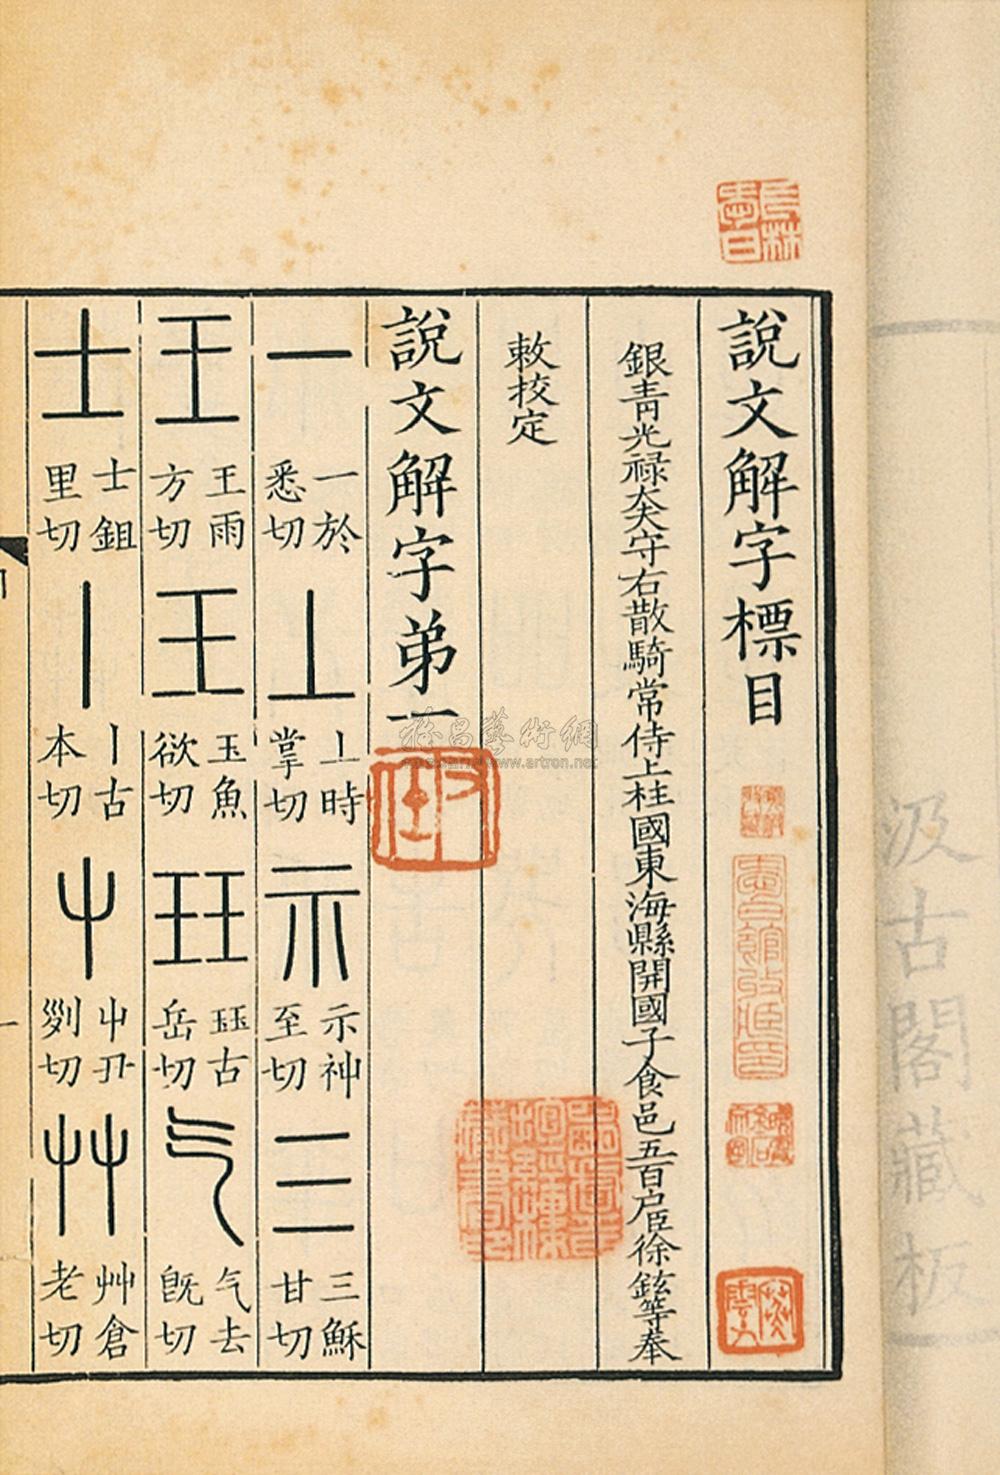 說文解字標目
銀青光祿大夫守右散騎常侍上柱國東海縣開國子食邑五百户臣徐鉉等奉
敕校定
說文解字弟一
一 一於悉切 丄 丄時掌切 示 示神至切 三 三穌甘切
王 王雨方切 王 玉魚欲切 玨 玨古岳切 气 气去旣切
士 士鉏里切 丨 丨古本切 屮 屮丑列切 艸 艸倉老切
一
汲古閣藏板
www.artron.net